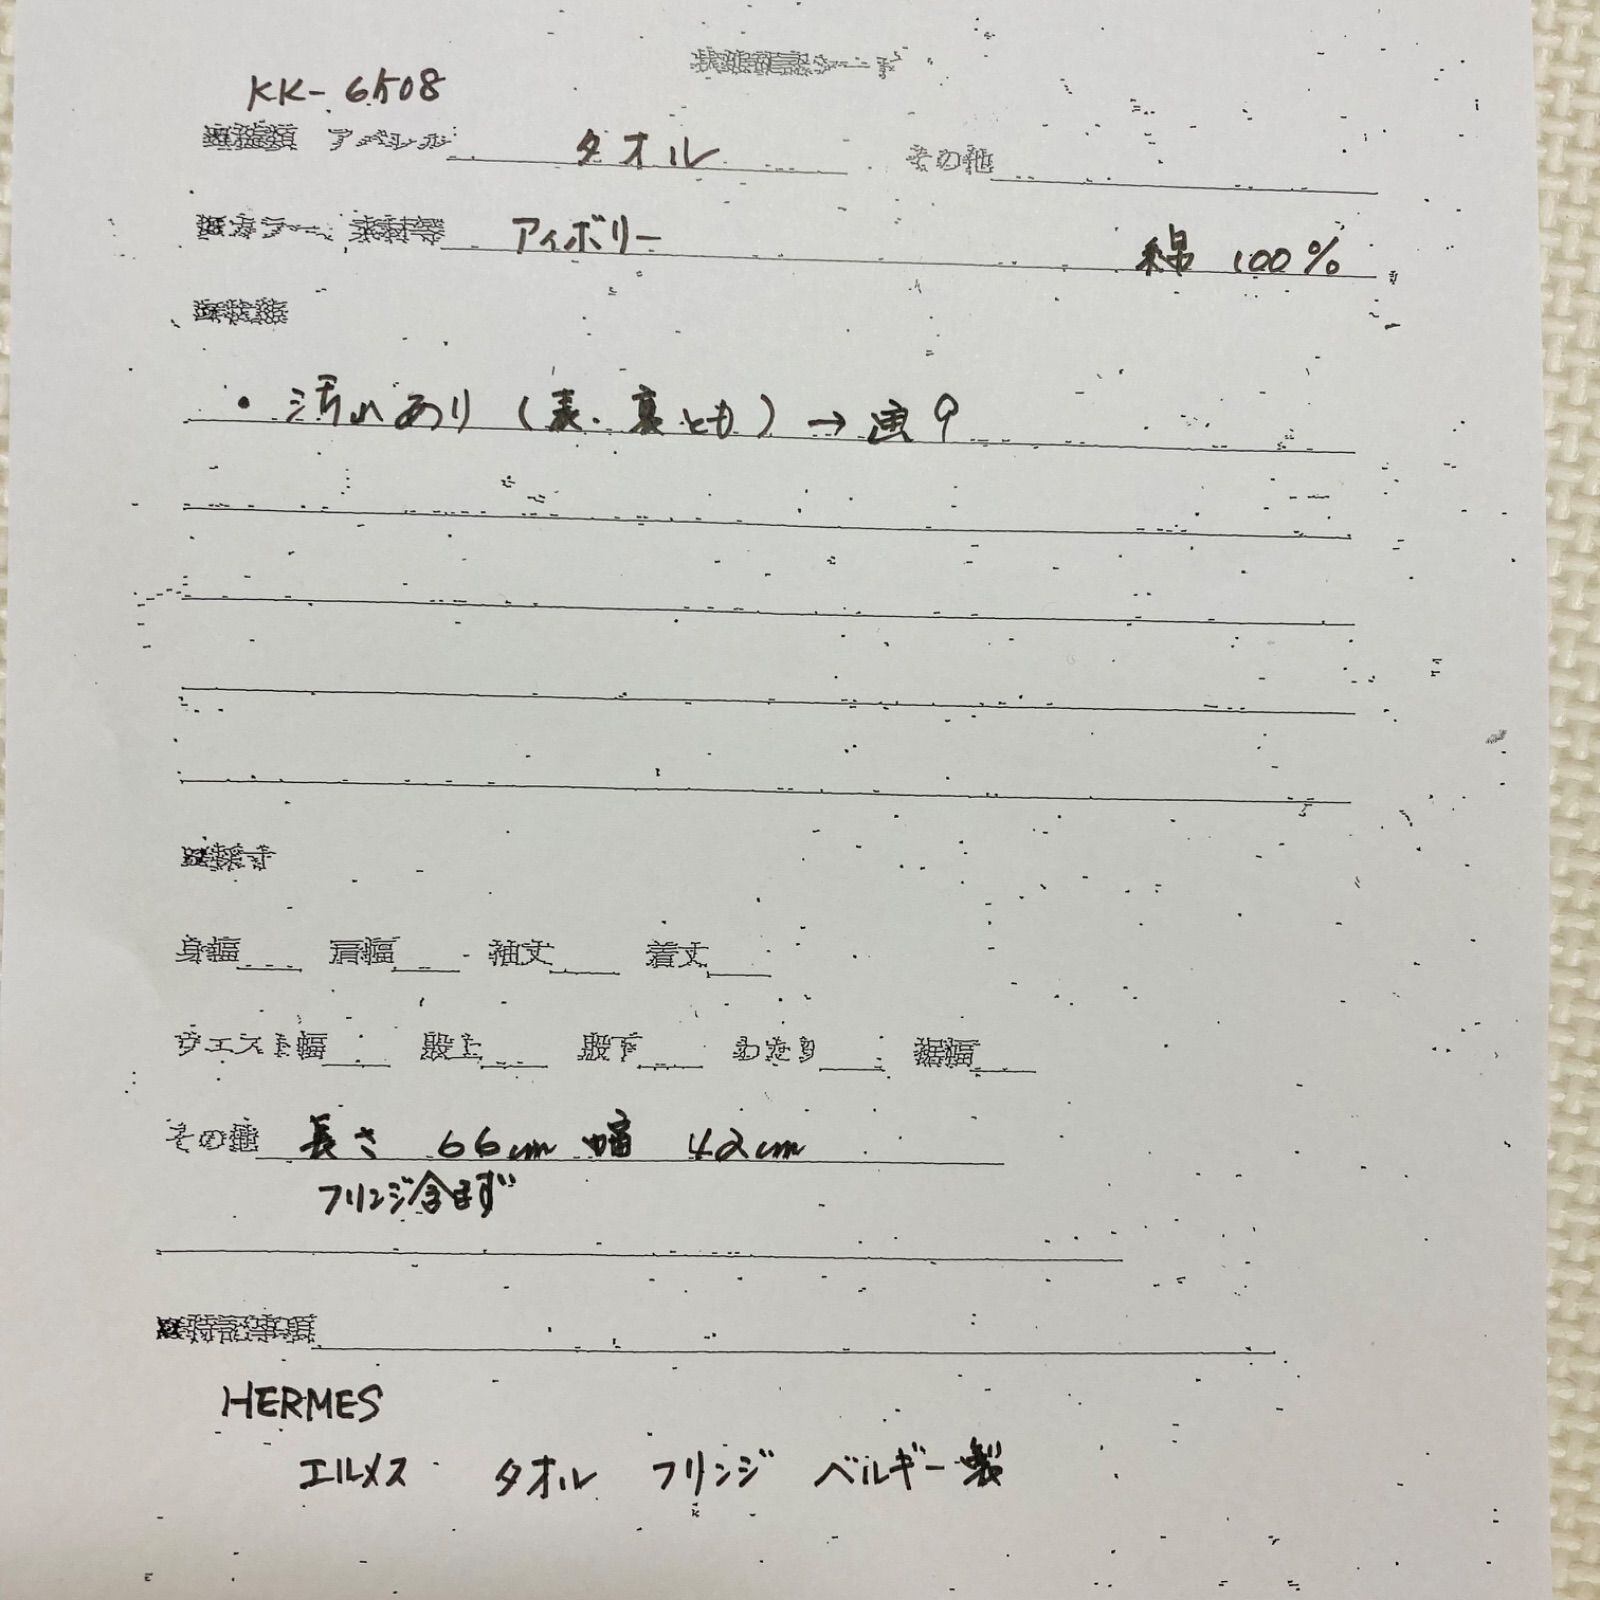 KK-6508
アパレル タオル その他
カラー、素材等 アイボリー 綿 100%
・汚れあり(表、裏とも)→画9
採寸
身幅 肩幅 袖丈 着丈
ウエスト幅 股上 股下 わたり 裾幅
その他 長さ 66cm 幅 42cm
フリンジ含まず
特記事項
HERMES
エルメス タオル フリンジ ベルギー製